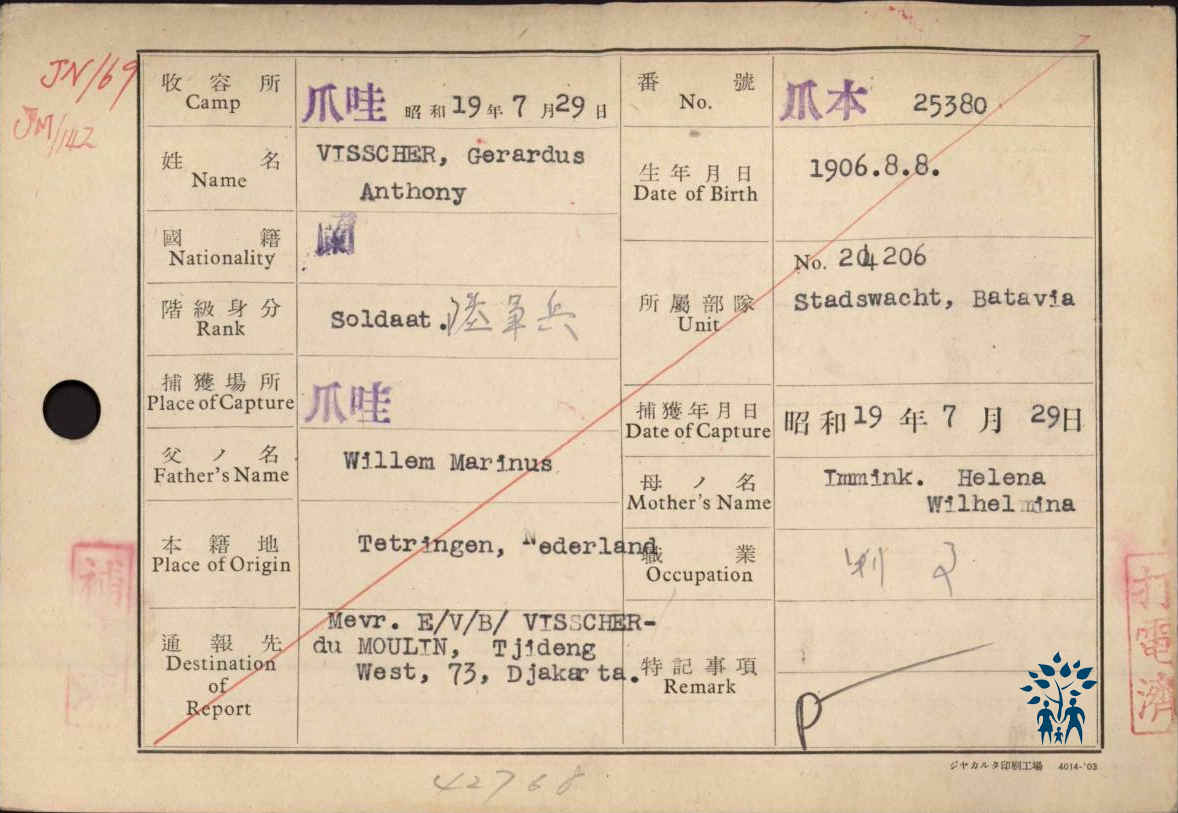 JN/169
JM/142
收容所
Camp
爪哇 昭和19年7月29日
番號
No.
爪本 25380
姓名
Name
VISSCHER, Gerardus
Anthony
生年月日
Date of Birth
1906.8.8.
國籍
Nationality
蘭
階級身分
Rank
Soldaat. 陸軍兵
所屬部隊
Unit
No. 204206
Stadswacht, Batavia
捕獲場所
Place of Capture
爪哇
捕獲年月日
Date of Capture
昭和19年7月29日
父ノ名
Father's Name
Willem Marinus
母ノ名
Mother's Name
Immink. Helena
Wilhelmina
本籍地
Place of Origin
Tetringen, Nederland
職業
Occupation
通報先
Destination
of
Report
Mevr. E/V/B/ VISSCHER-
du MOULIN, Tjideng
West, 73, Djakarta.
特記事項
Remark
P
補
打電濟
42768
ジヤカルタ印刷工場 4014-'03